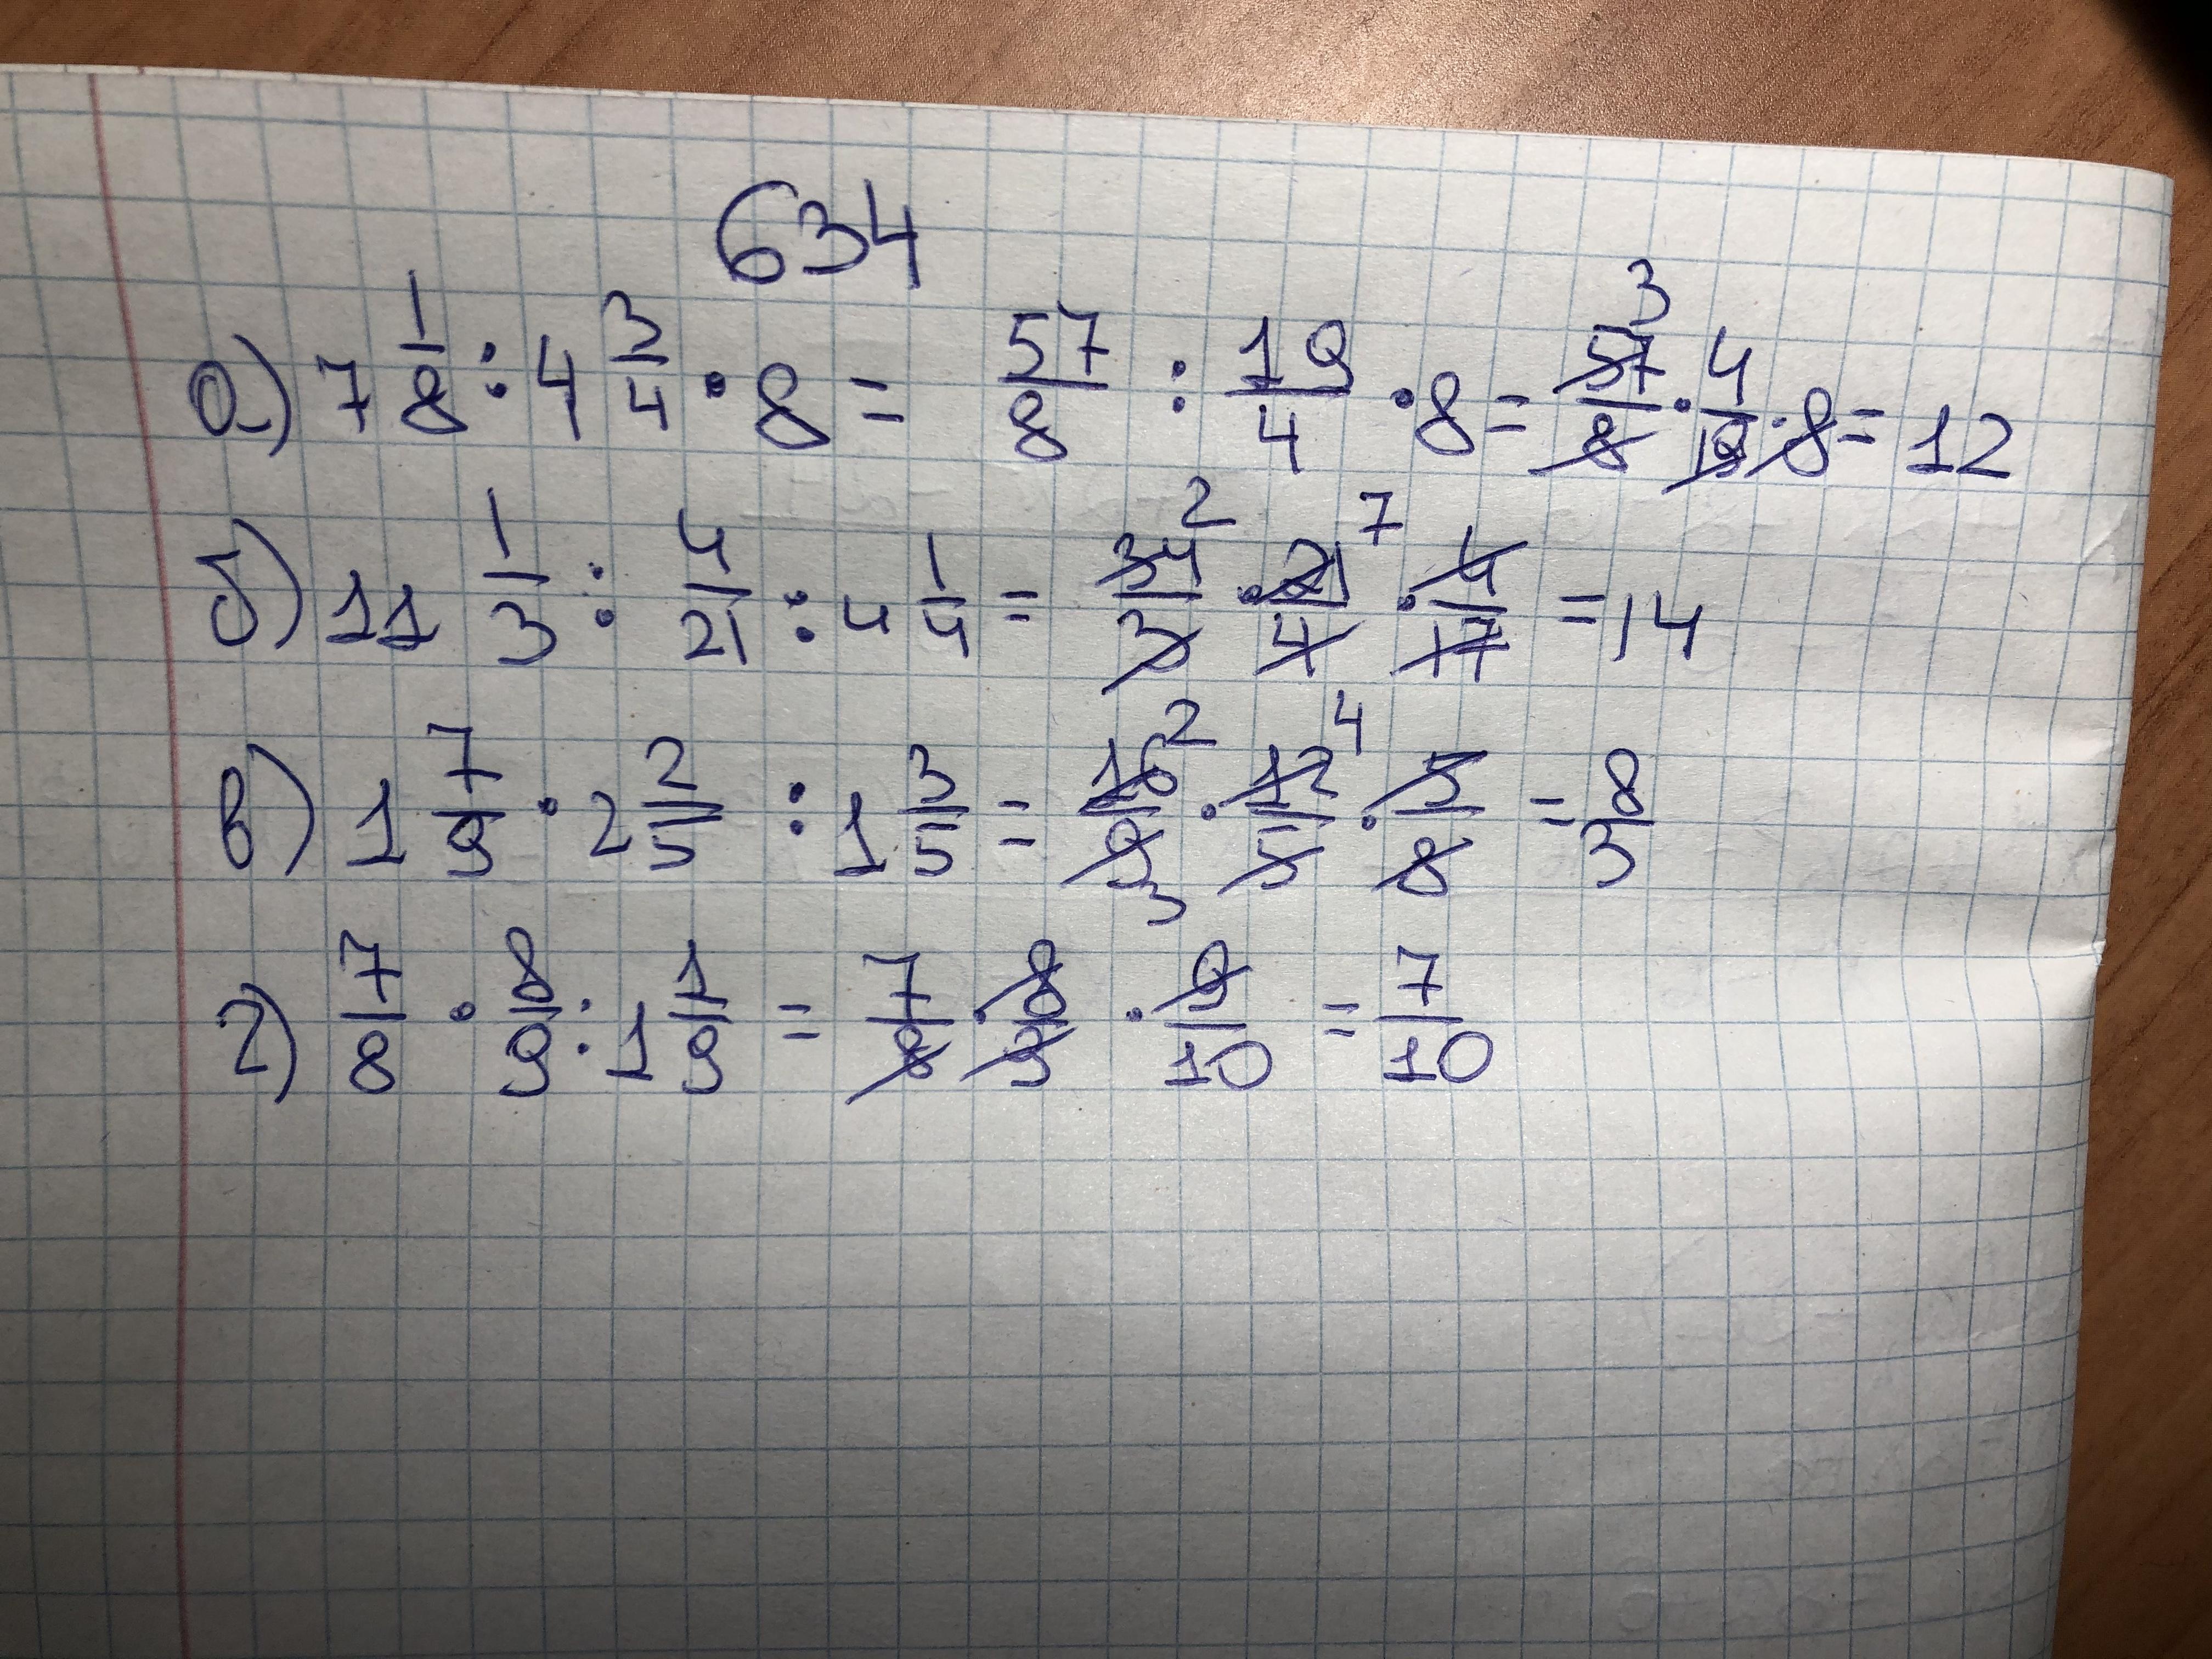 634
а) 7 1/8 : 4 3/4 · 8 = 57/8 : 19/4 · 8 = 57/8 3 · 4/19 · 8 = 12
б) 11 1/3 : 4/21 : 4 1/4 = 34/3 2 · 21/4 7 · 4/17 = 14
в) 1 7/9 · 2 2/5 : 1 3/5 = 16/9 2 3 · 12/5 4 · 5/8 = 8/3
г) 7/8 · 8/9 : 1 1/9 = 7/8 · 8/9 · 9/10 = 7/10